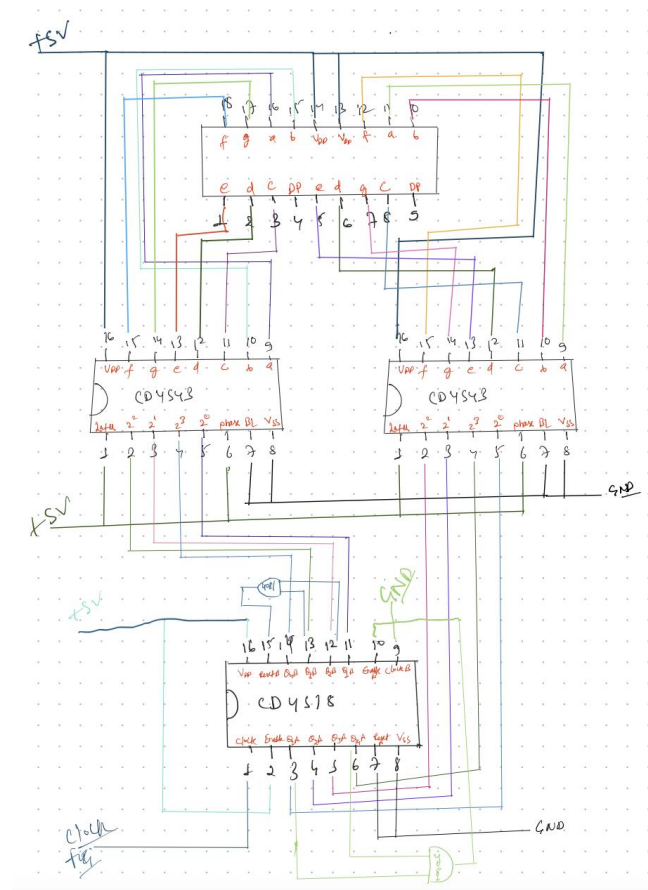 +5V
18 17 16 15 14 13 12 11 10
f g a b VDD VDD f a b
e d c DP e d g c DP
1 2 3 4 5 6 7 8 9
16 15 14 13 12 11 10 9
VDD f g e d c b a
CD4543
2² 2¹ 2³ 2⁰ phase BL VSS
1 2 3 4 5 6 7 8
16 15 14 13 12 11 10 9
VDD f g e d c b a
CD4543
2² 2¹ 2³ 2⁰ phase BL VSS
1 2 3 4 5 6 7 8
GND
+5V
4081
GND
+5V
16 15 14 13 12 11 10 9
VDD Reset B Q4B Q3B Q2B Q1B Enable Clock B
CD4518
Clock Enable Q1A Q2A Q3A Q4A Reset VSS
1 2 3 4 5 6 7 8
Clock
GND